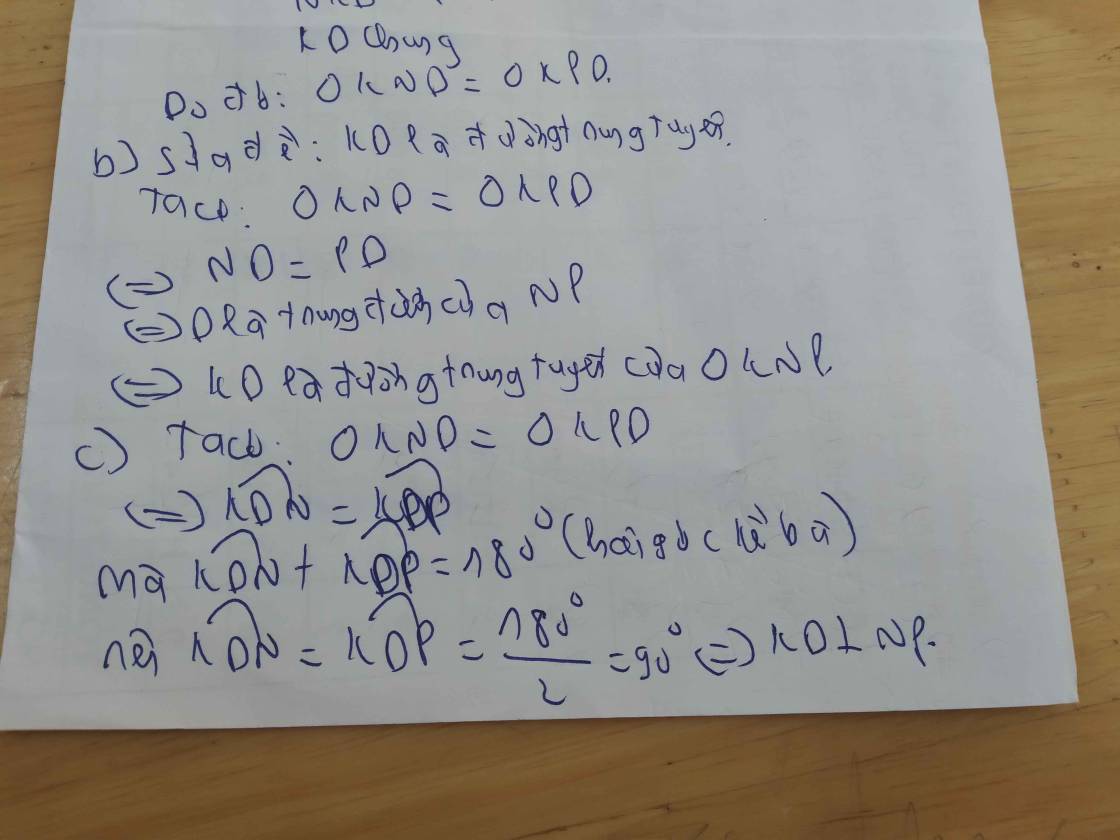 KD chung
Do đó: ΔKND = ΔKPD.
b) Sửa đề: KD là đường trung tuyến.
Ta có: ΔKND = ΔKPD
⇔ ND = PD
⇔ D là trung điểm của NP
⇔ KD là đường trung tuyến của ΔKNP.
c) Ta có: ΔKND = ΔKPD
⇔ \widehat{KDN} = \widehat{KDP}
mà \widehat{KDN} + \widehat{KDP} = 180° (hai góc kề bù)
nên \widehat{KDN} = \widehat{KDP} = 180°/2 = 90° ⇔ KD ⊥ NP.